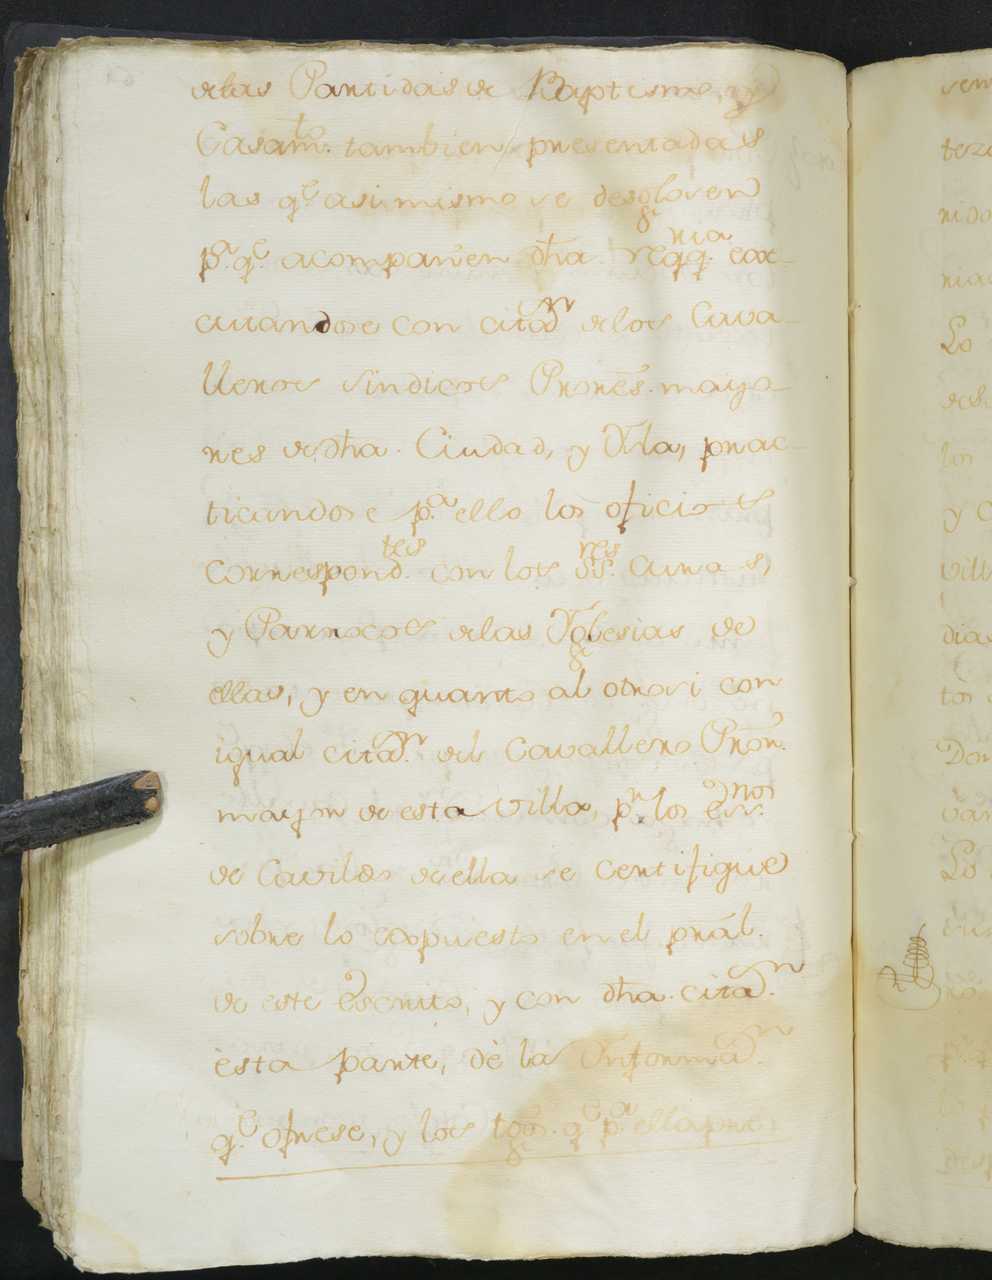 de las Partidas de Baptismo, y
Casam.to tambien presentadas
las q.e asi mismo se desglosen
p.a q.e acompañen dha. reqq.ria eax-
cutandose con citaz.n de los Cava-
lleros Sindicos Pronres. mayo-
res de dha. Ciudad, y Ysla, prac-
ticandose p.a ello los oficios
correspond.tes con los SS.res curas,
y Parrocos de las Yglesias de
ellas, y en quanto al otrosi con
igual citaz.n del Cavallero Pròr.
mayor de esta villa, p.r los Err.nos
de Cavildo de ella se certifique
sobre lo expuesto en el prâl.
de este Escrito, y con dha. citaz.n
èsta parte, dè la Ynformaz.n
q.e ofrese, y los tgos. q.e p.a ella pre-
Lo
y
Don
Lo